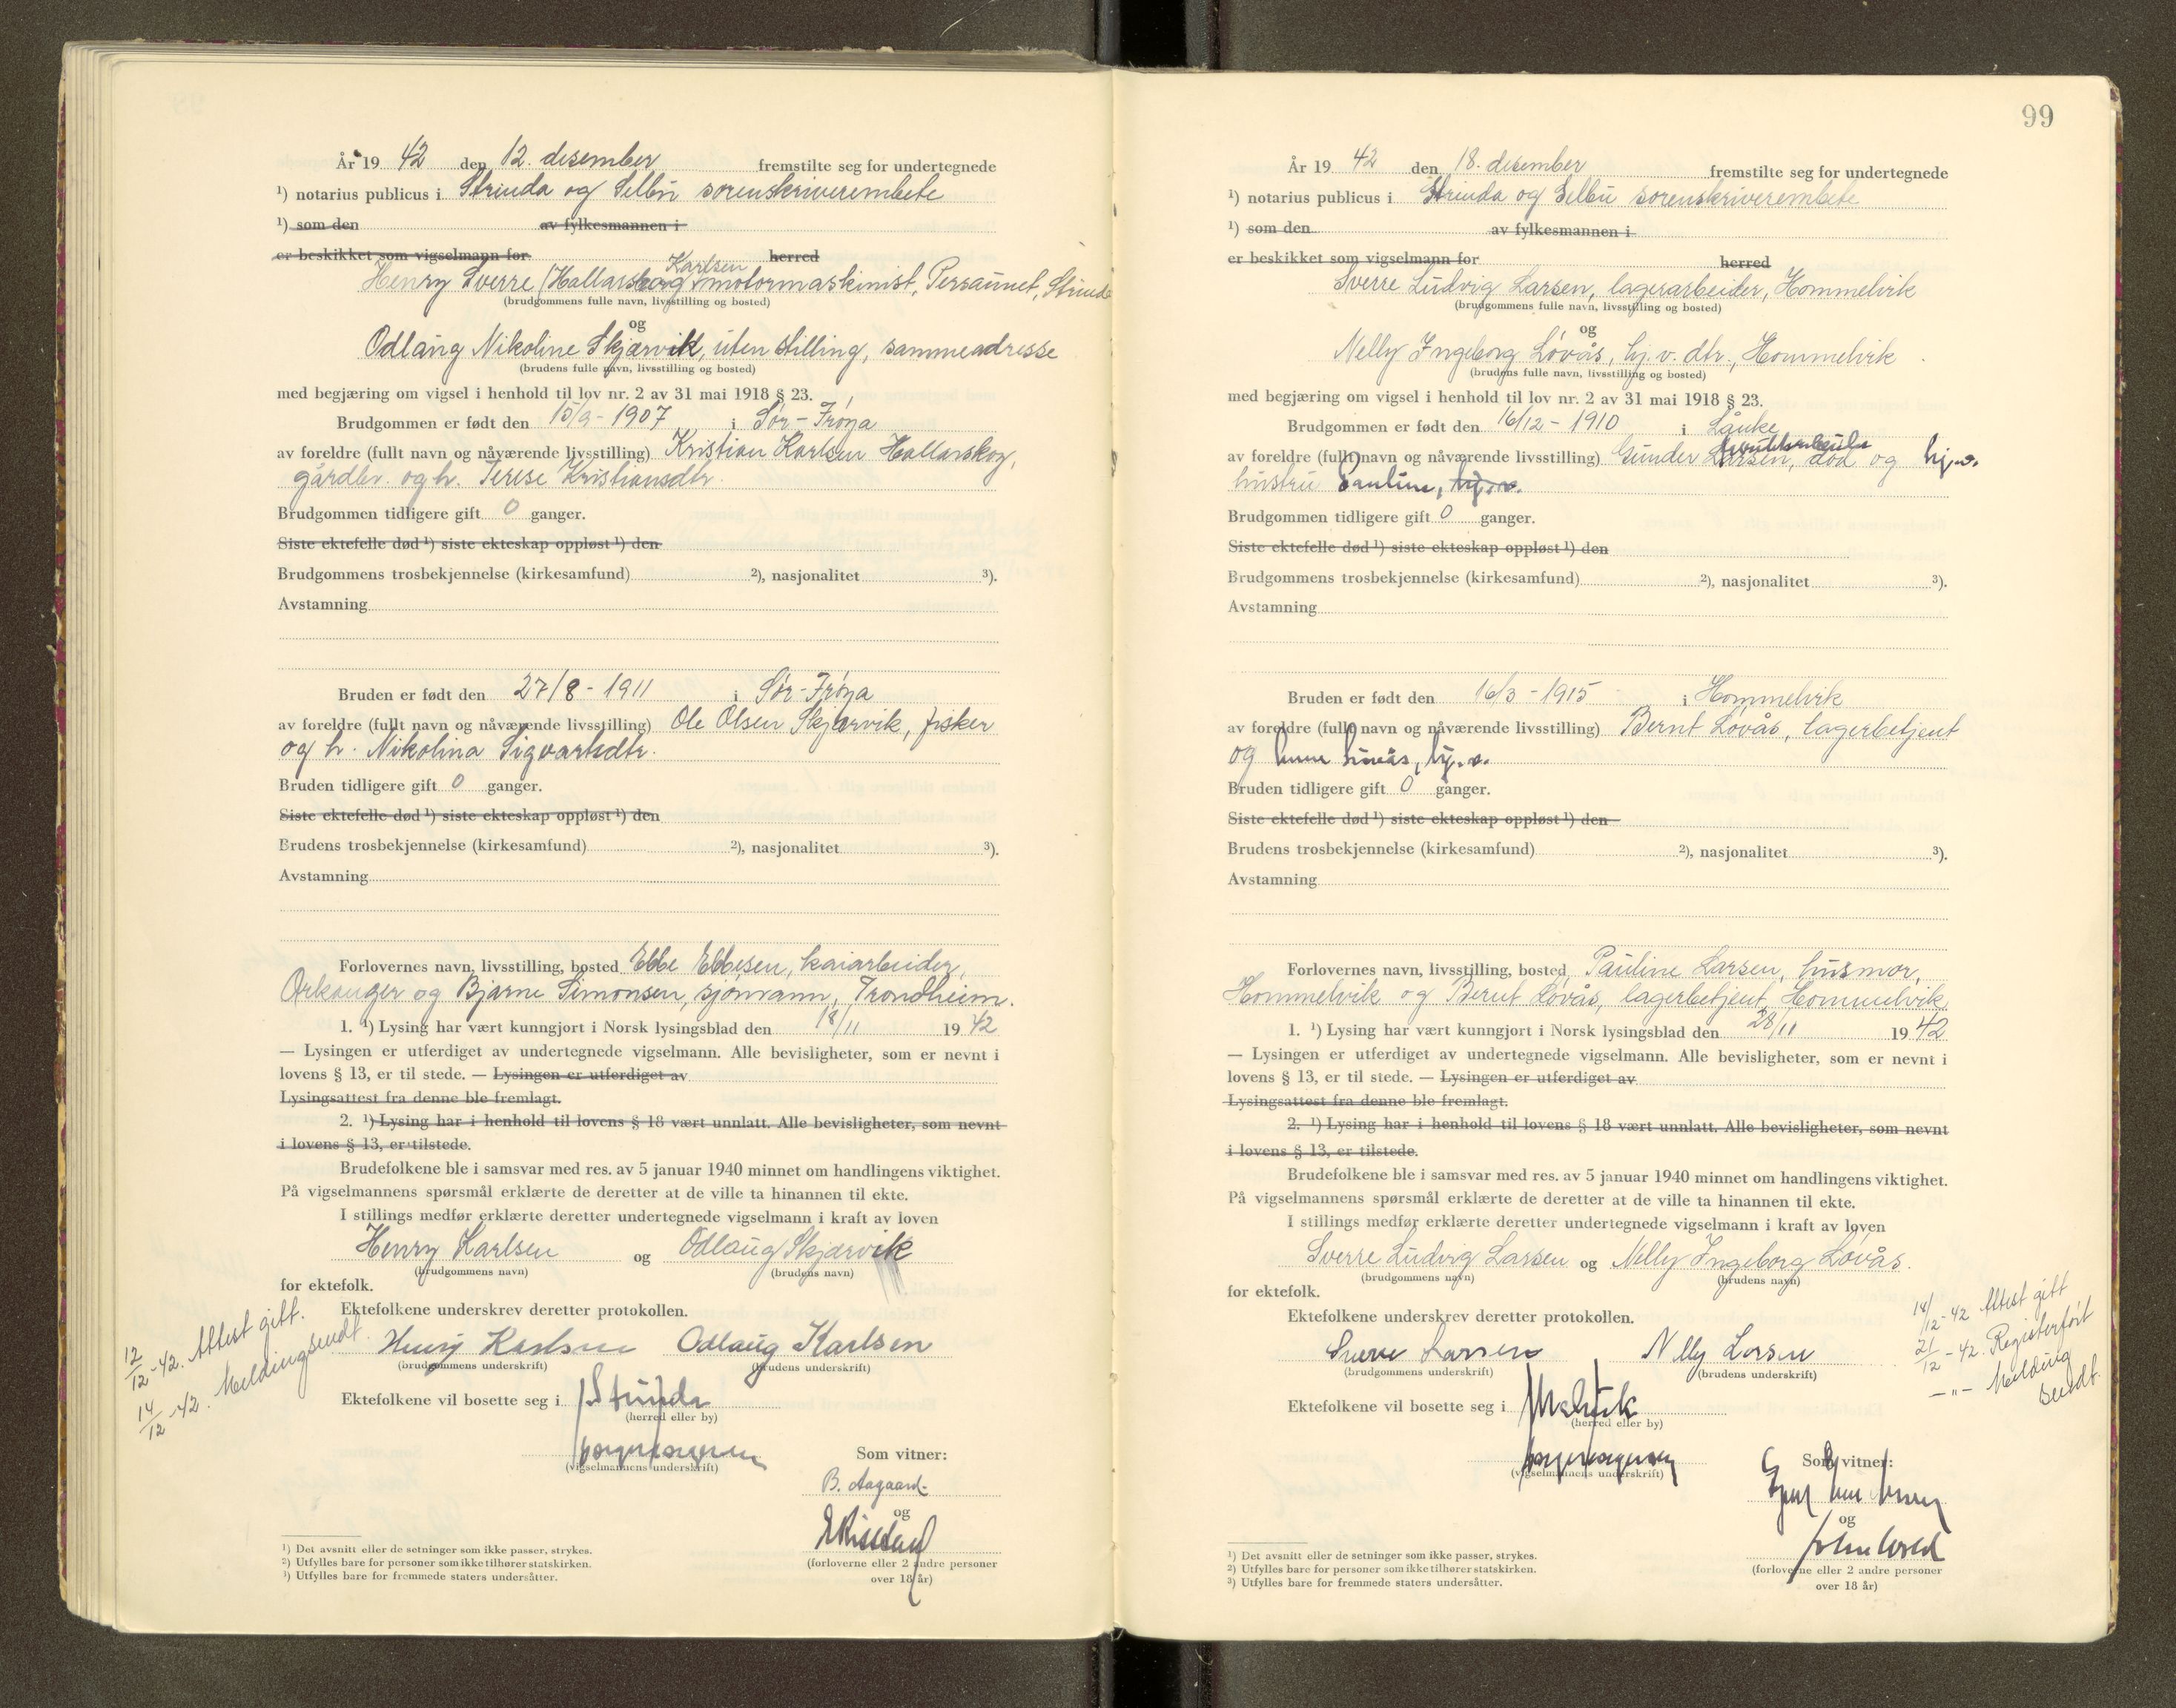 År 19 42 den 12. desember fremstilte seg for undertegnede
¹) notarius publicus i Strinda og Selbu sorenskriverembete
¹) som den av fylkesmannen i
er beskikket som vigselmann for herred
Karlsen
Henry Sverre (Hallarskog) motormaskinist, Persaunet, Strinda
(brudgommens fulle navn, livsstilling og bosted)
og
Odlaug Nikoline Skjærvik, uten stilling, samme adresse
(brudens fulle navn, livsstilling og bosted)
med begjæring om vigsel i henhold til lov nr. 2 av 31 mai 1918 § 23.
Brudgommen er født den 15/9 - 1907 i Sør-Frøya
av foreldre (fullt navn og nåværende livsstilling) Kristian Karlsen Hallarskog,
gårdbr. og h. Terese Kristiansdtr.
Brudgommen tidligere gift 0 ganger.
Siste ektefelle død ¹) siste ekteskap oppløst ¹) den
Brudgommens trosbekjennelse (kirkesamfund) ²), nasjonalitet ³).
Avstamning
Bruden er født den 27/8 - 1911 i Sør-Frøya
av foreldre (fullt navn og nåværende livsstilling) Ole Olsen Skjærvik, fisker
og h. Nikolina Sigvartsdtr.
Bruden tidligere gift 0 ganger.
Siste ektefelle død ¹) siste ekteskap oppløst ¹) den
Brudens trosbekjennelse (kirkesamfund) ²), nasjonalitet ³).
Avstamning
Forlovernes navn, livsstilling, bosted Ebbe Ebbesen, kaiarbeider,
Orkanger og Bjarne Simonsen, sjømann, Trondheim.
1. ¹) Lysing har vært kunngjort i Norsk lysingsblad den 18/11 19 42
— Lysingen er utferdiget av undertegnede vigselmann. Alle bevisligheter, som er nevnt i
lovens § 13, er til stede. — Lysingen er utferdiget av
Lysingsattest fra denne ble fremlagt.
2. ¹) Lysing har i henhold til lovens § 18 vært unnlatt. Alle bevisligheter, som nevnt
i lovens § 13, er tilstede.
Brudefolkene ble i samsvar med res. av 5 januar 1940 minnet om handlingens viktighet.
På vigselmannens spørsmål erklærte de deretter at de ville ta hinannen til ekte.
I stillings medfør erklærte deretter undertegnede vigselmann i kraft av loven
Henry Karlsen og Odlaug Skjærvik
(brudgommens navn) (brudens navn)
for ektefolk.
Ektefolkene underskrev deretter protokollen.
12/12-42. Attest gitt.
14/12-42. Melding sendt.
Henry Karlsen Odlaug Karlsen
(brudgommens underskrift) (brudens underskrift)
Ektefolkene vil bosette seg i Strinda
(herred eller by)
(vigselmannens underskrift)
Som vitner:
B. Aagaard
og
(forloverne eller 2 andre personer
over 18 år)
¹) Det avsnitt eller de setninger som ikke passer, strykes.
²) Utfylles bare for personer som ikke tilhører statskirken.
³) Utfylles bare for fremmede staters undersåtter.
99
År 19 42 den 18. desember fremstilte seg for undertegnede
¹) notarius publicus i Strinda og Selbu sorenskriverembete
¹) som den av fylkesmannen i
er beskikket som vigselmann for herred
Sverre Ludvig Larsen, lagerarbeider, Hommelvik
(brudgommens fulle navn, livsstilling og bosted)
og
Nelly Ingeborg Løvås, hj. v. dtr., Hommelvik
(brudens fulle navn, livsstilling og bosted)
med begjæring om vigsel i henhold til lov nr. 2 av 31 mai 1918 § 23.
Brudgommen er født den 16/12 - 1910 i Lånke
av foreldre (fullt navn og nåværende livsstilling) Gunder Larsen, død og hj.v.
hustru Pauline, hj.v.
Brudgommen tidligere gift 0 ganger.
Siste ektefelle død ¹) siste ekteskap oppløst ¹) den
Brudgommens trosbekjennelse (kirkesamfund) ²), nasjonalitet ³).
Avstamning
Bruden er født den 16/3 - 1915 i Hommelvik
av foreldre (fullt navn og nåværende livsstilling) Bernt Løvås, lagerbetjent
og Løvås, hj.v.
Bruden tidligere gift 0 ganger.
Siste ektefelle død ¹) siste ekteskap oppløst ¹) den
Brudens trosbekjennelse (kirkesamfund) ²), nasjonalitet ³).
Avstamning
Forlovernes navn, livsstilling, bosted Pauline Larsen, husmor,
Hommelvik og Bernt Løvås, lagerbetjent, Hommelvik
1. ¹) Lysing har vært kunngjort i Norsk lysingsblad den 28/11 19 42
— Lysingen er utferdiget av undertegnede vigselmann. Alle bevisligheter, som er nevnt i
lovens § 13, er til stede. — Lysingen er utferdiget av
Lysingsattest fra denne ble fremlagt.
2. ¹) Lysing har i henhold til lovens § 18 vært unnlatt. Alle bevisligheter, som nevnt
i lovens § 13, er tilstede.
Brudefolkene ble i samsvar med res. av 5 januar 1940 minnet om handlingens viktighet.
På vigselmannens spørsmål erklærte de deretter at de ville ta hinannen til ekte.
I stillings medfør erklærte deretter undertegnede vigselmann i kraft av loven
Sverre Ludvig Larsen og Nelly Ingeborg Løvås.
(brudgommens navn) (brudens navn)
for ektefolk.
Ektefolkene underskrev deretter protokollen.
18/12-42 Attest gitt
21/12-42. Registerført
-"- Melding
sendt.
Sverre Larsen Nelly Larsen
(brudgommens underskrift) (brudens underskrift)
Ektefolkene vil bosette seg i Malvik
(herred eller by)
(vigselmannens underskrift)
Som vitner:
og
(forloverne eller 2 andre personer
over 18 år)
¹) Det avsnitt eller de setninger som ikke passer, strykes.
²) Utfylles bare for personer som ikke tilhører statskirken.
³) Utfylles bare for fremmede staters undersåtter.